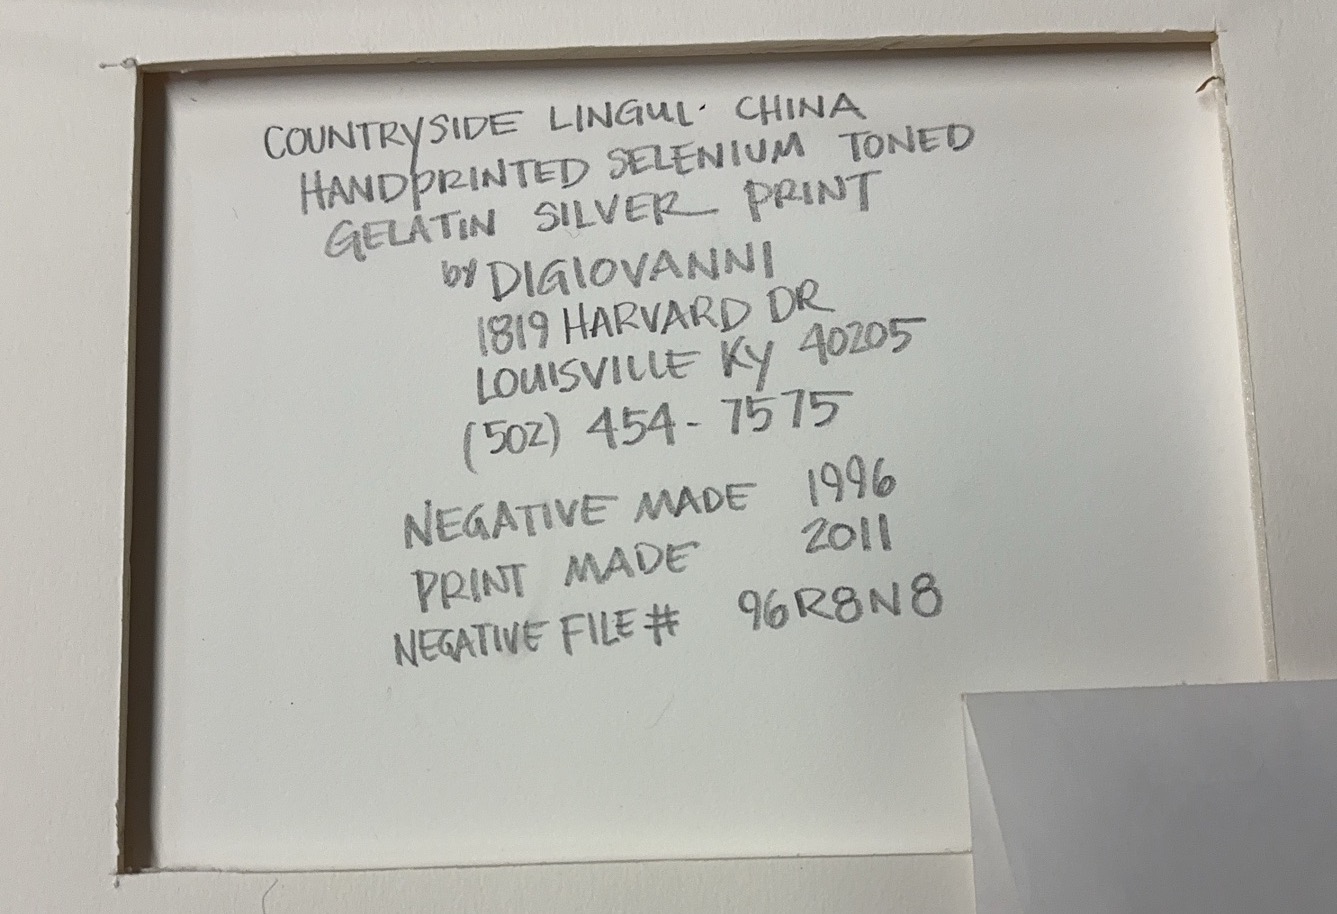 COUNTRYSIDE LINGUL. CHINA
HANDPRINTED SELENIUM TONED
GELATIN SILVER PRINT
by DIGIOVANNI
1819 HARVARD DR
LOUISVILLE KY 40205
(502) 454-7575
NEGATIVE MADE 1996
PRINT MADE 2011
NEGATIVE FILE # 96R8N8